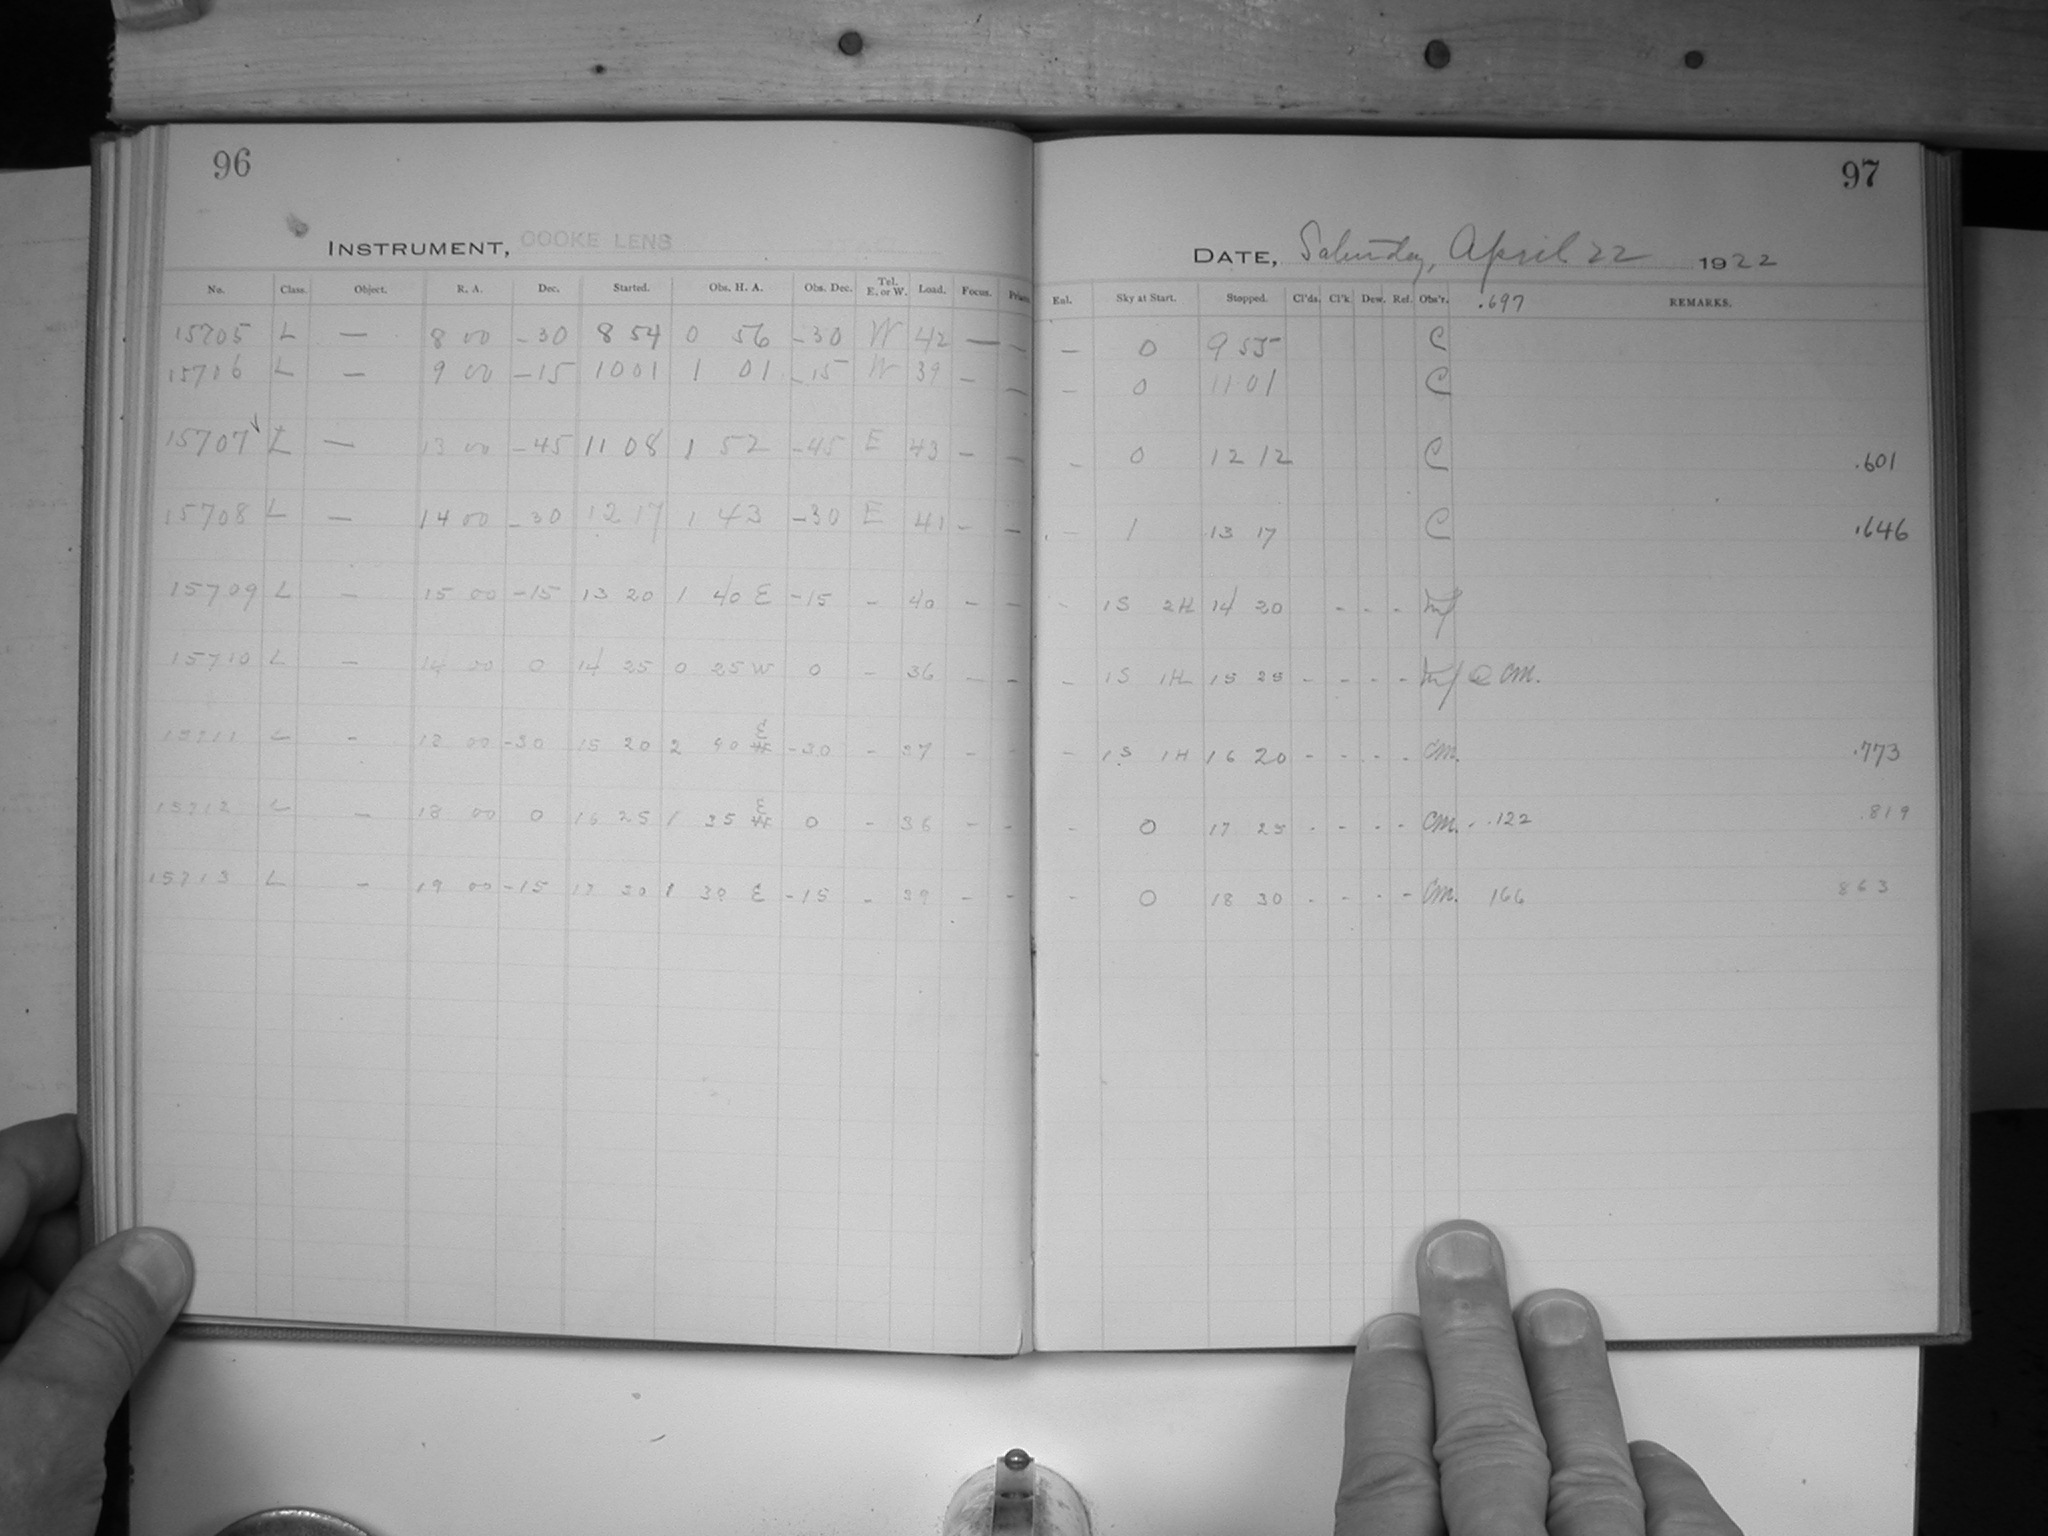 96
INSTRUMENT, COOKE LENS
No. Class. Object. R. A. Dec. Started. Obs. H. A. Obs. Dec. Tel. E. or W. Load. Focus.
15705 L — 8 00 -30 8 54 0 56 -30 W 42 — —
15706 L — 9 00 -15 10 01 1 01 -15 W 39 — —
15707 L — 13 00 -45 11 08 1 52 -45 E 43 — —
15708 L — 14 00 -30 12 17 1 43 -30 E 41 — —
15709 L — 15 00 -15 13 20 1 40 E -15 - 40 - -
15710 L — 14 00 0 14 25 0 25 W 0 - 36 - -
15711 L - 18 00 -30 15 20 2 40 E -30 - 37 - -
15712 L - 18 00 0 16 25 1 35 E 0 - 36 - -
15713 L - 19 00 -15 17 30 1 30 E -15 - 39 - -
97
DATE, Saturday, April 22 1922
Enl. Sky at Start. Stopped. Cl'ds. Cl'k. Dew. Ref. Obs'r. .697 REMARKS.
— 0 9 55 C
- 0 11 01 C
- 0 12 12 C .601
- 1 13 17 C .646
- 1S 2H 14 20 - - -
- 1S 1H 15 25 - - - - CM.
- 1S 1H 16 20 - - - - CM. .773
- 0 17 25 - - - - CM. .122 .819
- 0 18 30 - - - - CM. 166 863